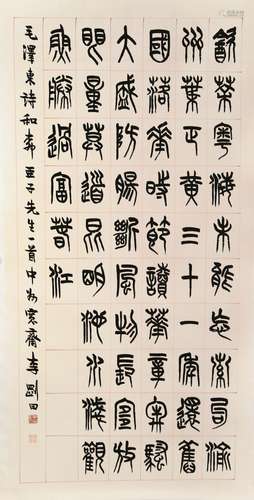 飲茶粵海未能忘索句渝
州葉正黃三十一年還舊
國落花時節讀華章牢騷
大盛防腸斷風物長宜放
眼量莫道昆明池水淺觀
魚勝過富春江
毛澤東詩和柳亞子先生一首中州齋李剛田